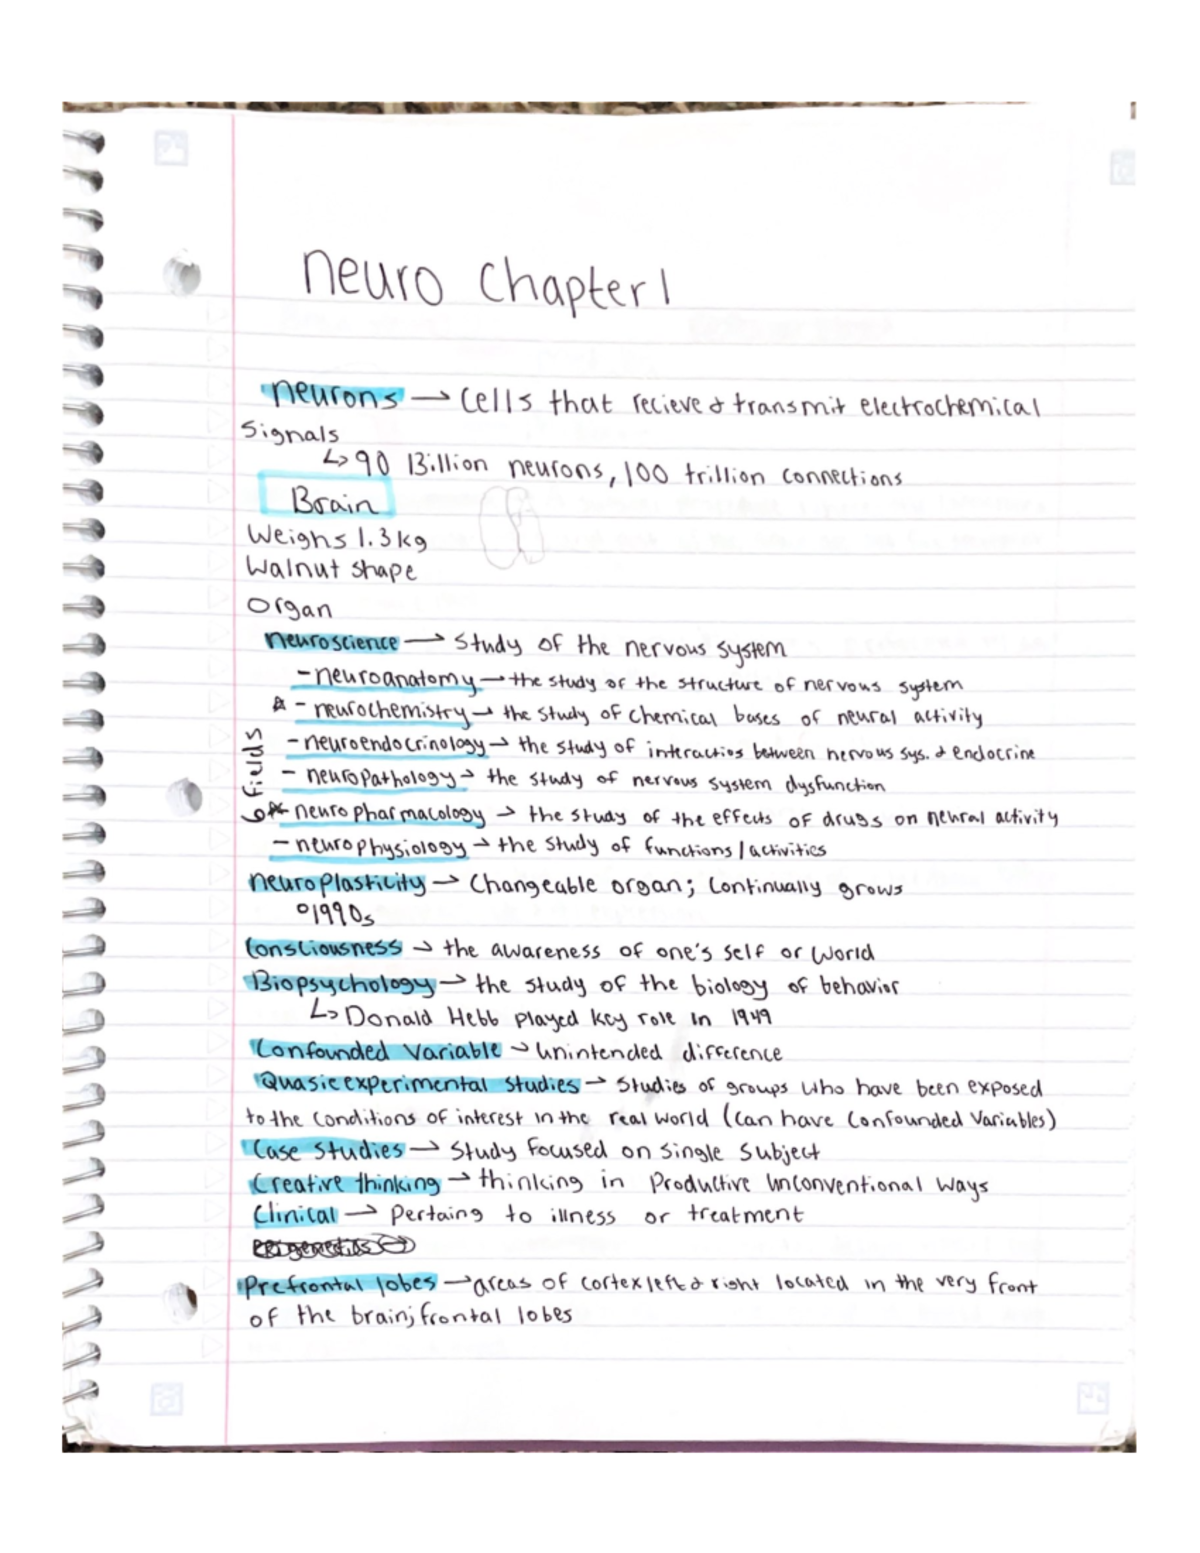 neuro Chapter 1
neurons → Cells that recieve & transmit electrochemical
Signals
↳ 90 Billion neurons, 100 trillion connections
Brain
Weighs 1.3kg
Walnut shape
Organ
neuroscience → Study of the nervous system
- neuroanatomy → the study of the structure of nervous system
☆ - neurochemistry → the study of chemical bases of neural activity
- neuroendocrinology → the study of interactios between nervous sys. & endocrine
fields
- neuropathology → the study of nervous system dysfunction
☆ neuropharmacology → the study of the effects of drugs on neural activity
- neurophysiology → the study of functions/activities
neuroplasticity → Changeable organ; Continually grows
°1990s
Consciousness → the awareness of one's self or world
Biopsychology → the study of the biology of behavior
↳ Donald Hebb played key role in 1949
Confounded Variable → unintended difference
Quasieexperimental Studies → Studies of groups who have been exposed
to the conditions of interest in the real world (Can have Confounded Variables)
Case Studies → Study focused on Single Subject
Creative thinking → thinking in Productive Unconventional ways
Clinical → Pertaing to illness or treatment
Prefrontal lobes → areas of cortex left & right located in the very front
of the brain; frontal lobes